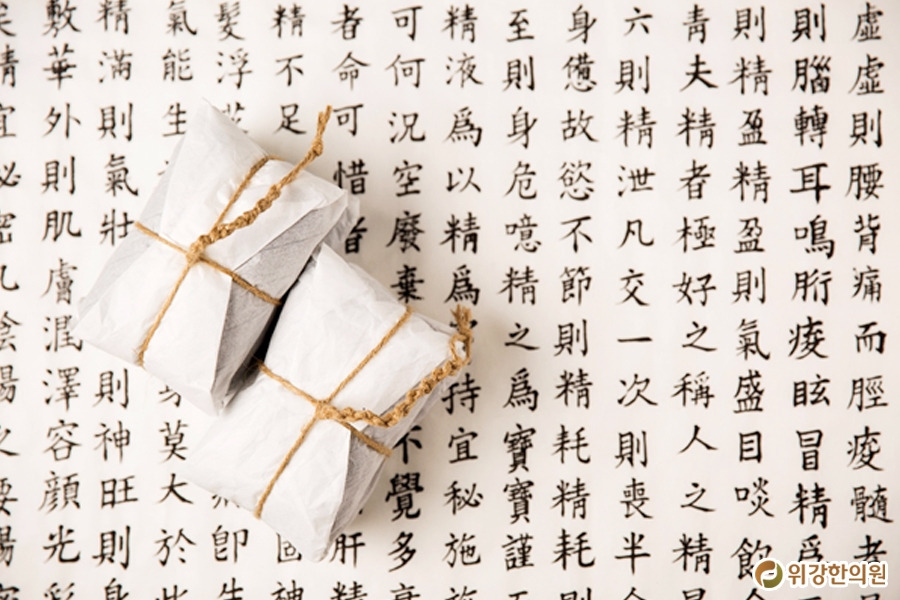 虛虛則腰背痛而脛痠髓者
則腦轉耳鳴胻痠眩冒精爲
則精盈精盈則氣盛目啖飮
靑夫精者極好之稱人之精
六則精泄凡交一次則喪半
身憊故慾不節則精耗精耗
至則身危噫精之爲寶寶謹
精液爲以精爲持宜秘施
可何況空廢棄不覺多
者命可惜者肝精
精不足神
髮浮卽生
氣能生莫大於此
精滿則氣壯則神旺則身
敷華外則肌膚潤澤容顔光彩
위강한의원